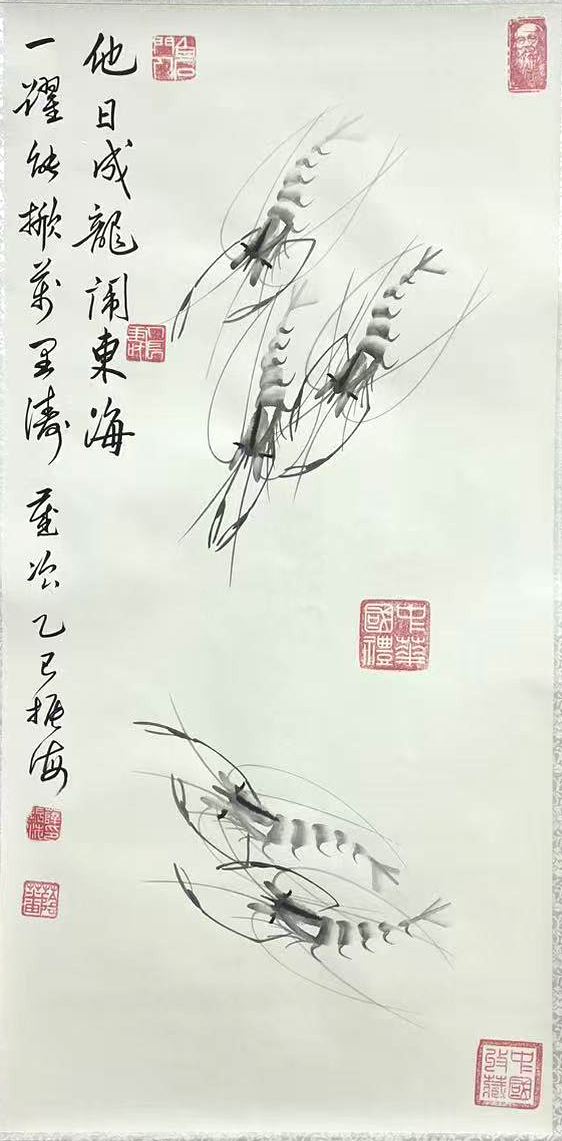 他日成龍闹東海
一躍能掀萬里濤 歲次乙巳振海
中華國禮
中國收藏